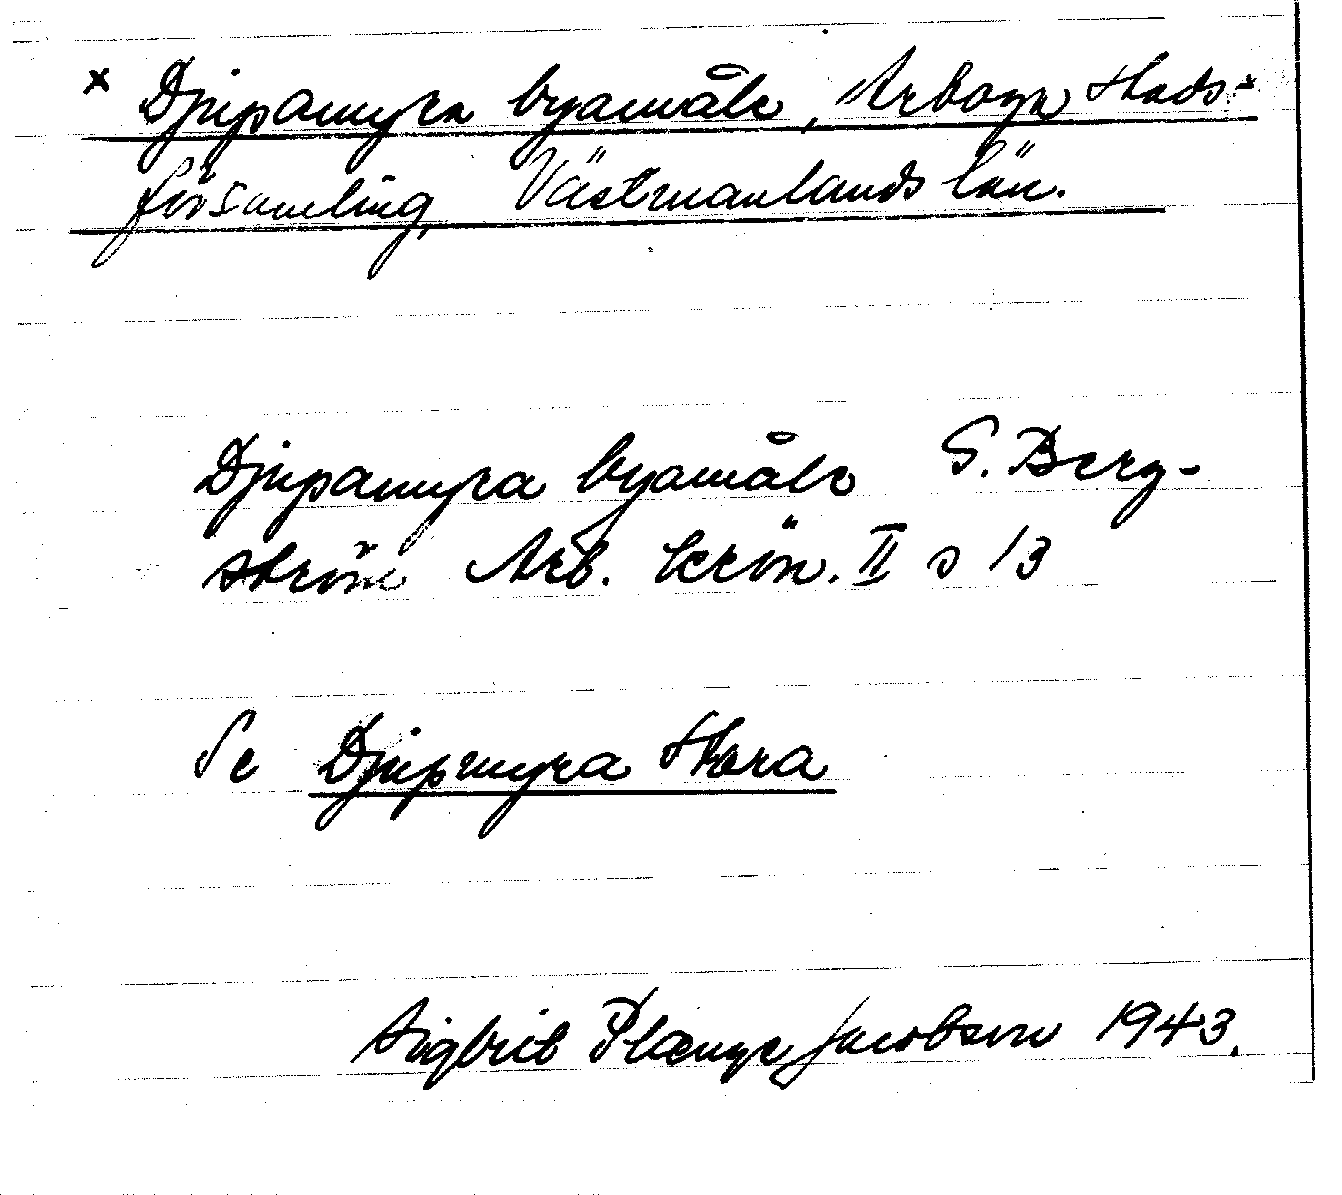 x Djupamyra byamåle, Arboga stads-
församling, Västmanlands län.
Djupamyra byamåle G. Berg-
ström Arb. krön. II s 13
Se Djupmyra Stora
Sigbrit Plænge Jacobson 1943.